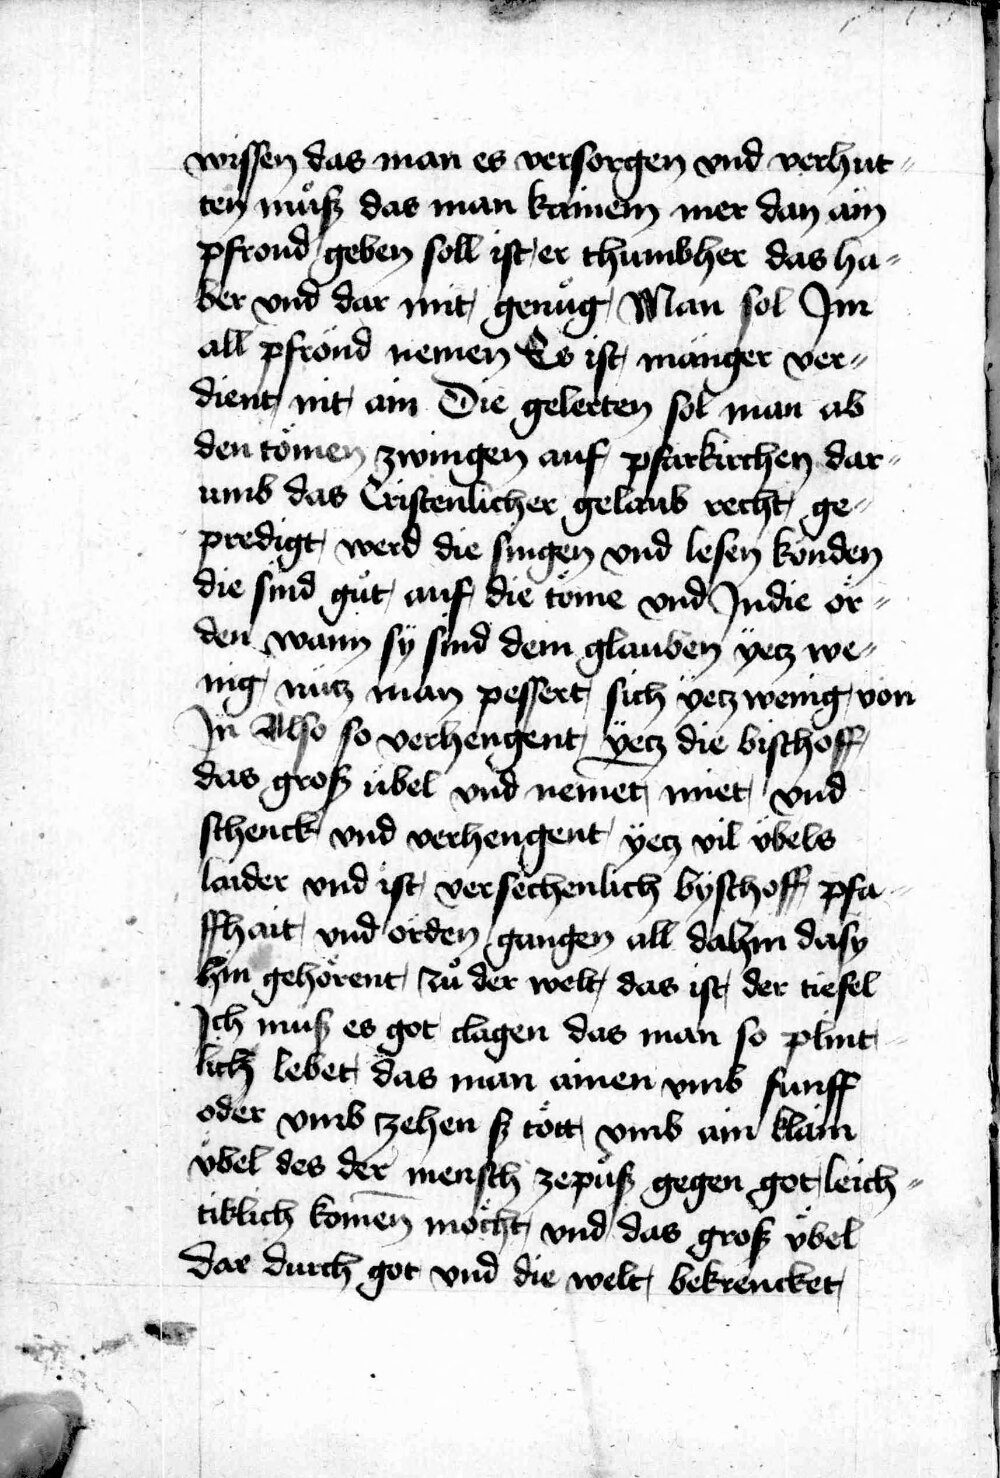 wissen das man es versorgen vnd verhut-
ten mu̇ß das man kainem mer dan ain
pfrond geben soll ist er thumbher das ha-
ber vnd dar mit genu̇g Man sol Im
all pfrönd nemen Es ist mänger ver-
dient nit ain Die gelerten sol man ab
den tömen zwingen auf pfarkirchen dar-
umb das Cristenlicher gelaub recht ge-
predigt werd die singen vnd lesen könden
die sind gu̇t auf die töme vnd Indie ör-
den wann sy sind dem glauben yetz we-
nig nutz man pessert sich yetz wenig von
In Also so verhengent yetz die bischoff
das groß übel vnd nemet miet vnd
schenck vnd verhengent yetz vil übels
laider vnd ist versechenlich byschoff pfa-
ffhait vnd orden gangen all dahin dasy
hin gehörent zu̇ der welt das ist der tiefel
Ich muß es got clagen das man so plint-
lich lebet das man ainen vmb funff
oder vmb zehen ß tött vmb ain klain
übel des der mensch zepu̇ß gegen got leich-
tiklich komen möcht vnd das groß übel
dar durch got vnd die welt bekrencket